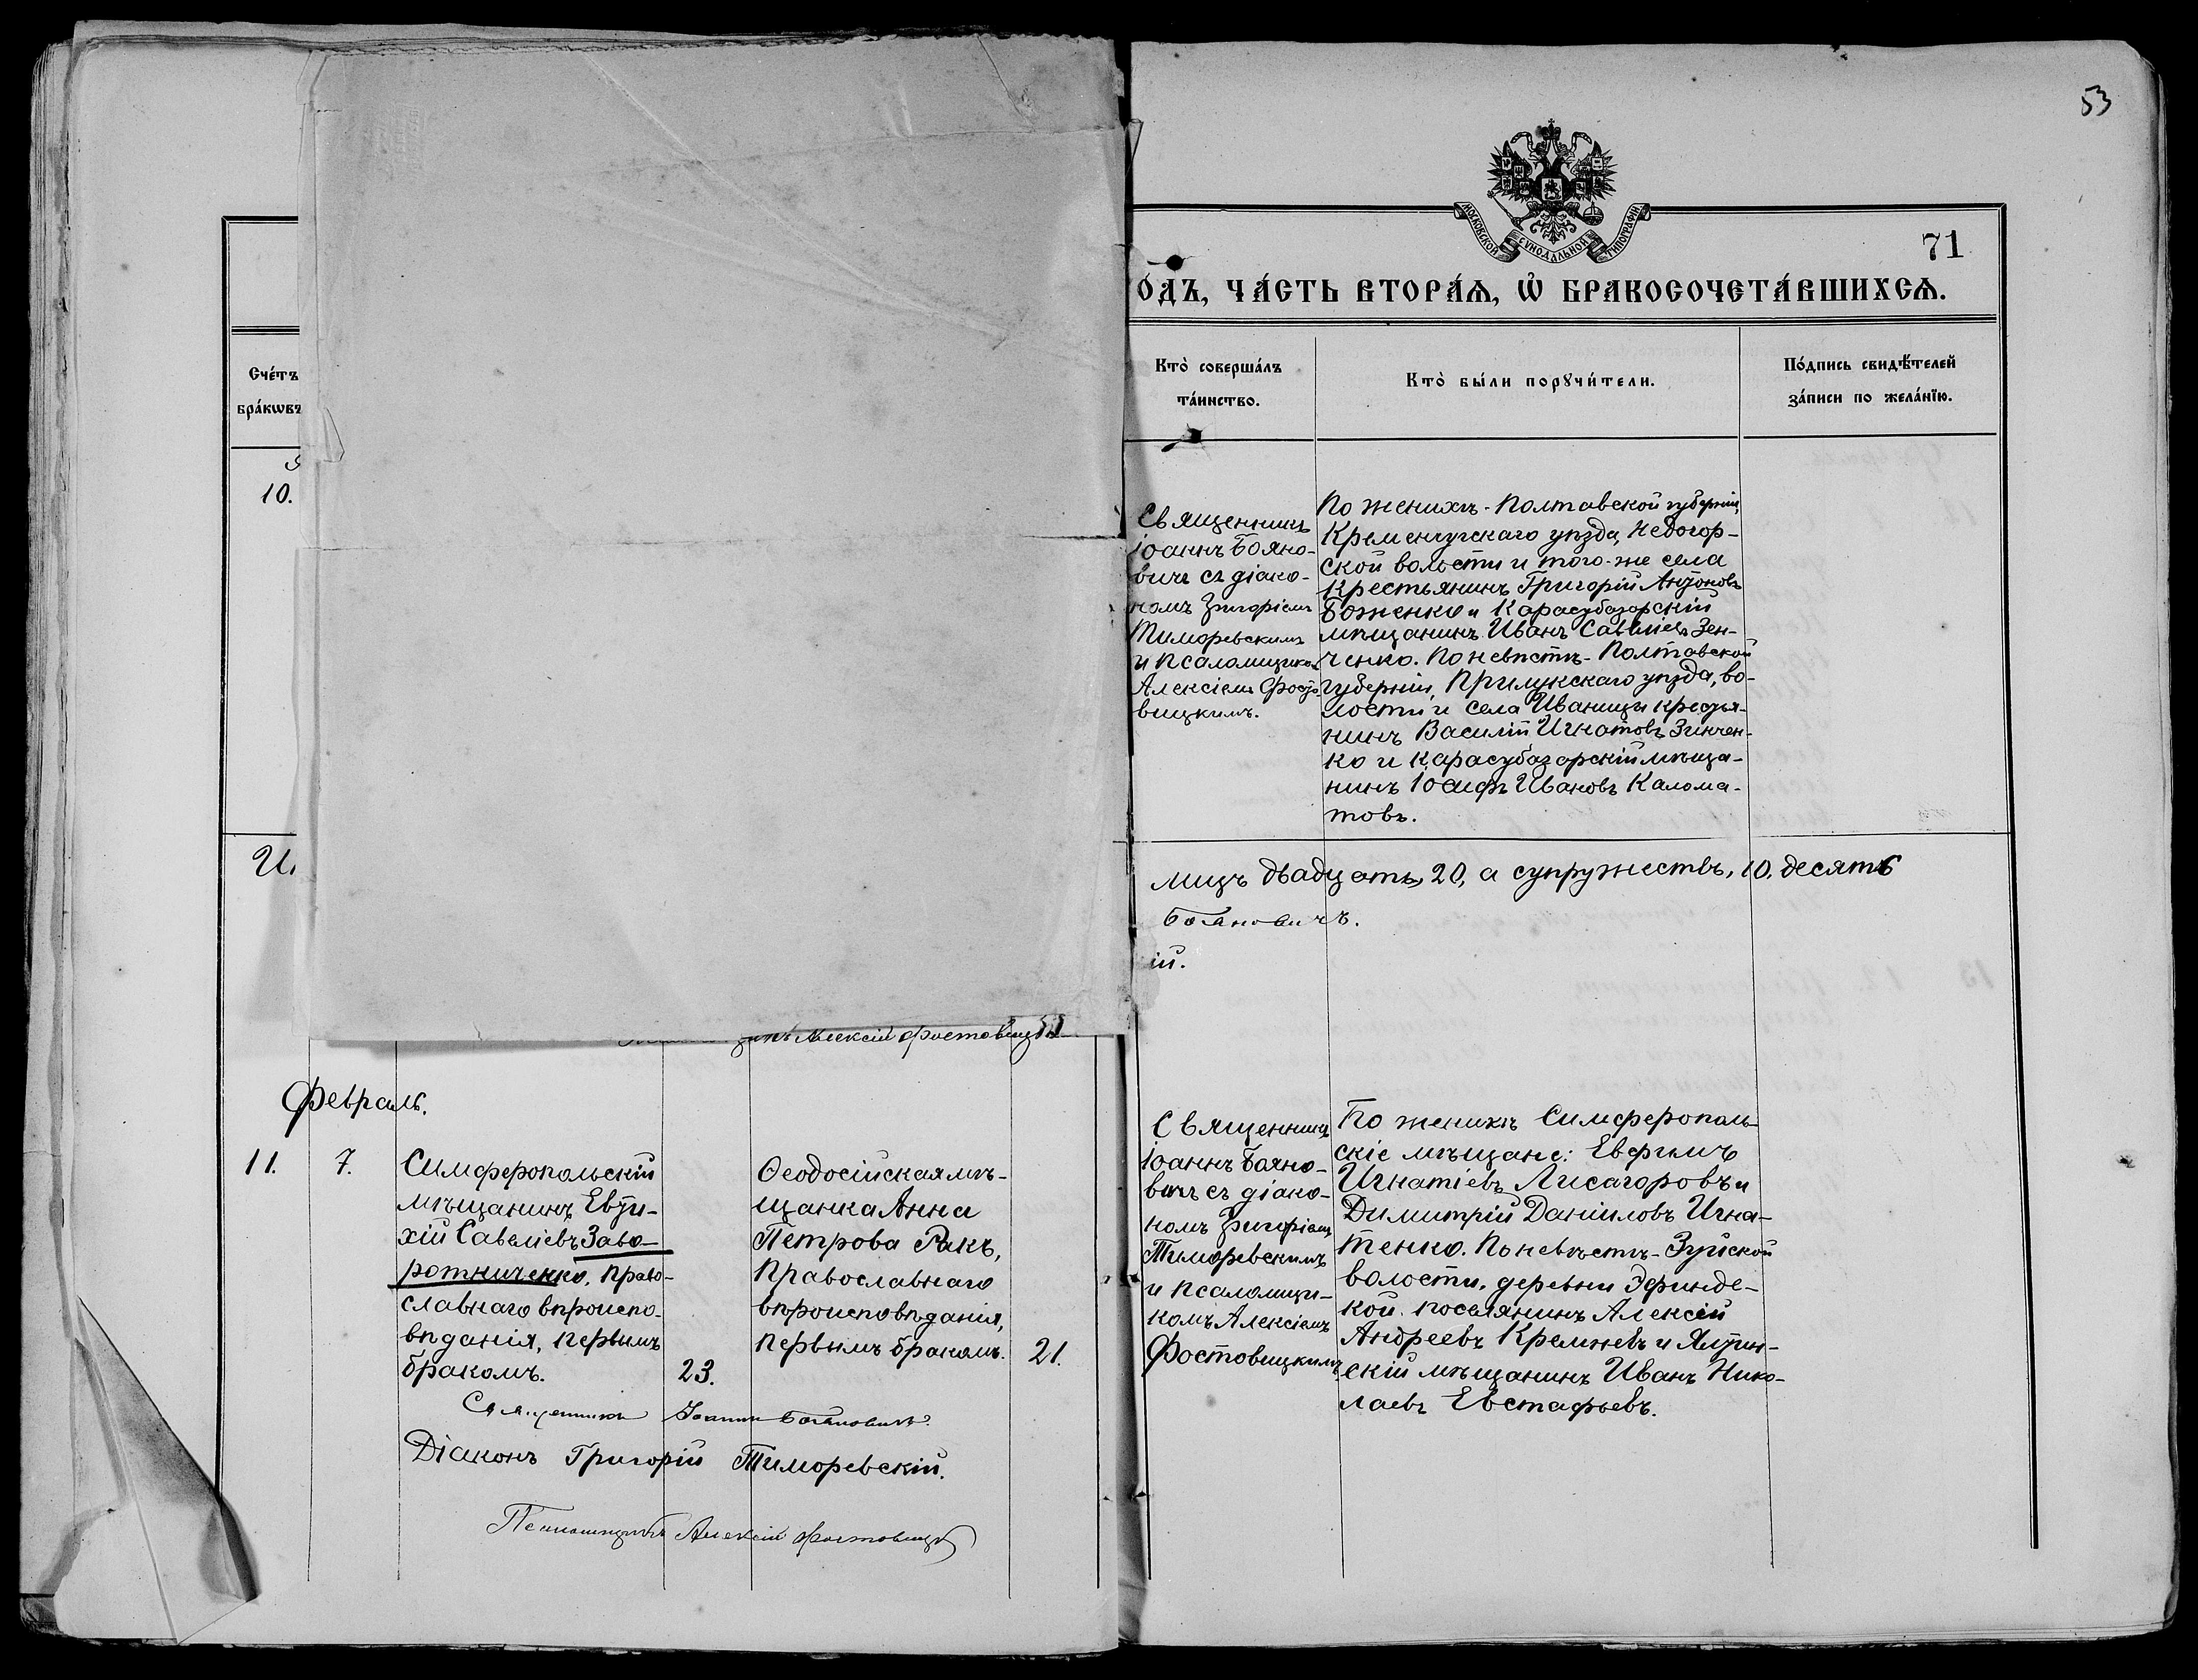 53
МОСКОВСКОЙ СУНОДАЛЬНОЙ ТИПОГРАФІИ
71
О́ДЪ, ЧА́СТЬ ВТОРА́Ѧ, Ѡ҆ БРАКОСОЧЕТА́ВШИХСѦ.
Сче́тъ
бра́кѡвъ
Кто̀ соверша́лъ
та́инство.
Кто̀ бы́ли порꙋчи́тели.
По́дпись свидѣ́телей
за́писи по жела́нїю.
10.
Священникъ
Іоаннъ Бояно-
вичъ съ діако-
номъ Григоріемъ
Тиморевскимъ
и псаломщиком
Алексіемъ Фосто-
вицкимъ.
По женихѣ - Полтавской губерніи,
Кременчугскаго уѣзда, Недогор-
ской волости и того-же села
крестьянинъ Григорій Антоновъ
Боженко и Карасубазарскій
мѣщанинъ Иванъ Савеліевъ Зен-
ченко. По невѣстѣ - Полтавской
губерніи, Прилукскаго уѣзда, во-
лости и села Иваницы крестья-
нинъ Василій Игнатовъ Зинчен-
ко и Карасубазарскій мѣща-
нинъ Іосифъ Ивановъ Калома-
товъ.
лицъ двадцать, 20, а супружествъ, 10. десять
Бояновичъ.
ій.
Алексій Фостовицкій
Февраль.
11.
7.
Симферопольскій
мѣщанинъ Евти-
хій Савеліевъ Заво-
ротниченко, право-
славнаго вѣроиспо-
вѣданія, первымъ
бракомъ.
23.
Ѳеодосійская мѣ-
щанка Анна
Петрова Ракъ,
православнаго
вѣроисповѣданія,
первымъ бракомъ.
21.
Священникъ Іоаннъ Бояновичъ.
Діаконъ Григорій Тиморевскій.
Псаломщикъ Алексій Фостовицкій
Священникъ
Іоаннъ Бояно-
вичъ съ діако-
номъ Григоріемъ
Тиморевскимъ
и псаломщи-
комъ Алексіемъ
Фостовицкимъ.
По женихѣ Симферополь-
скіе мѣщане: Евфимъ
Игнатіевъ Лисагоровъ и
Димитрій Даніиловъ Игна-
тенко. По невѣстѣ - Зуйской
волости, деревни Эфинде-
кой поселянинъ Алексій
Андреевъ Кремневъ и Ялтин-
скій мѣщанинъ Иванъ Нико-
лаевъ Евстафьевъ.